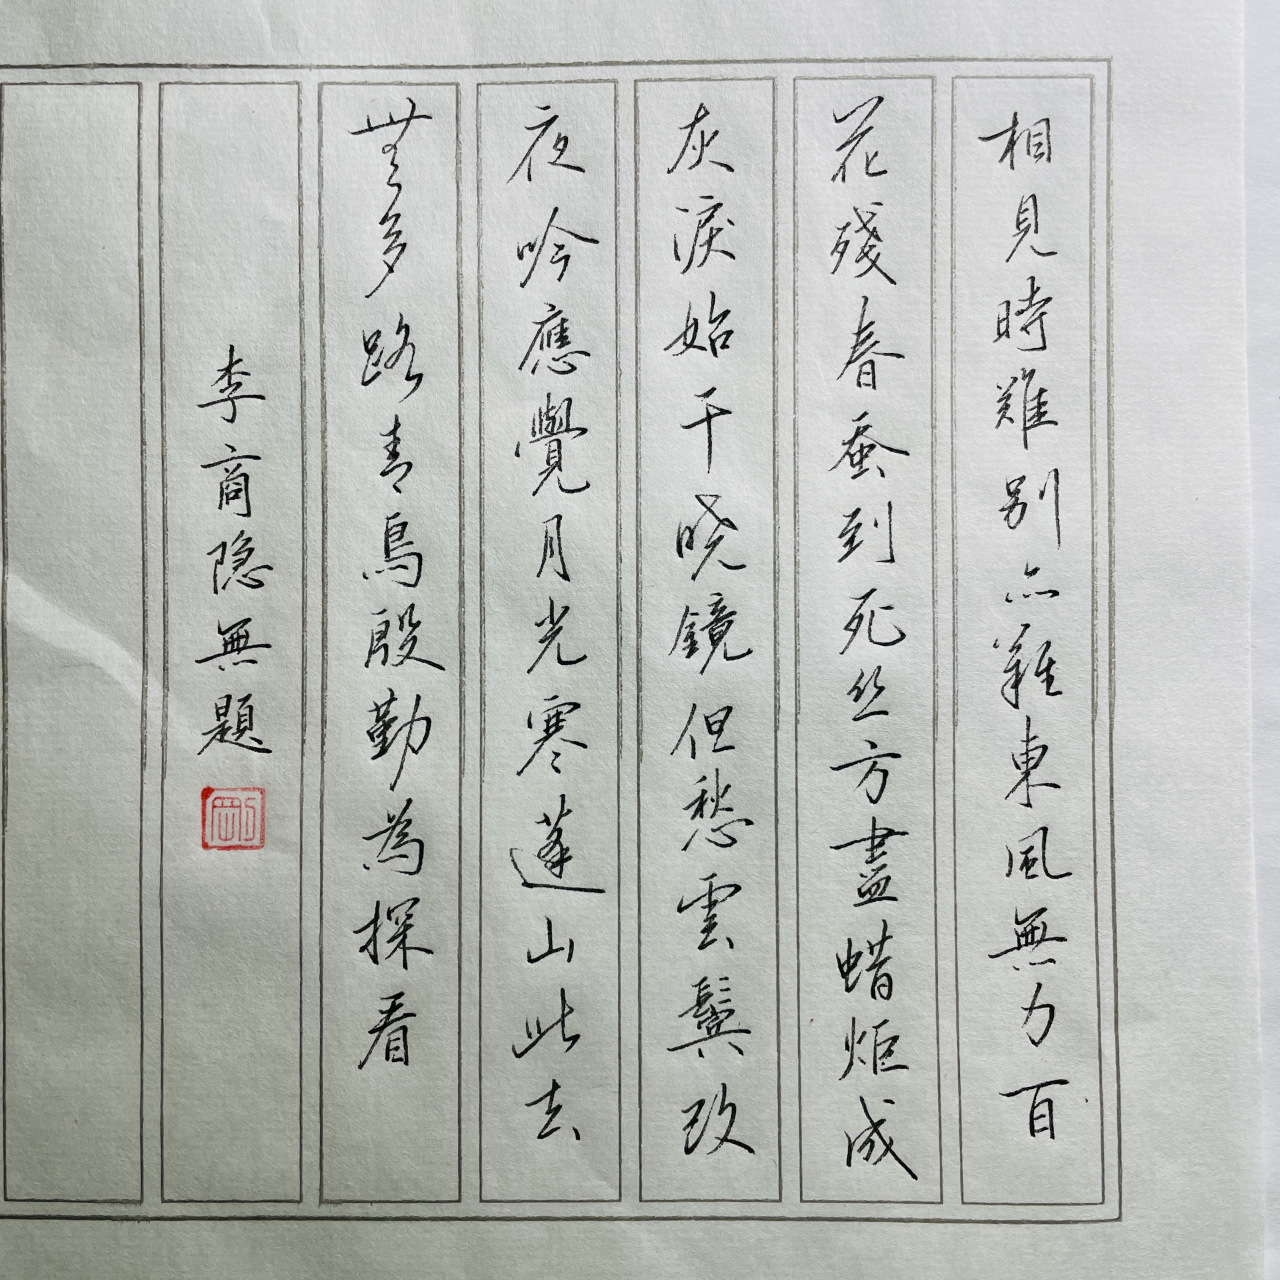 相見時難别亦難東風無力百
花殘春蚕到死丝方盡蜡炬成
灰淚始干晓鏡但愁雲鬓改
夜吟應覺月光寒蓬山此去
無多路青鳥殷勤為探看
李商隐無題